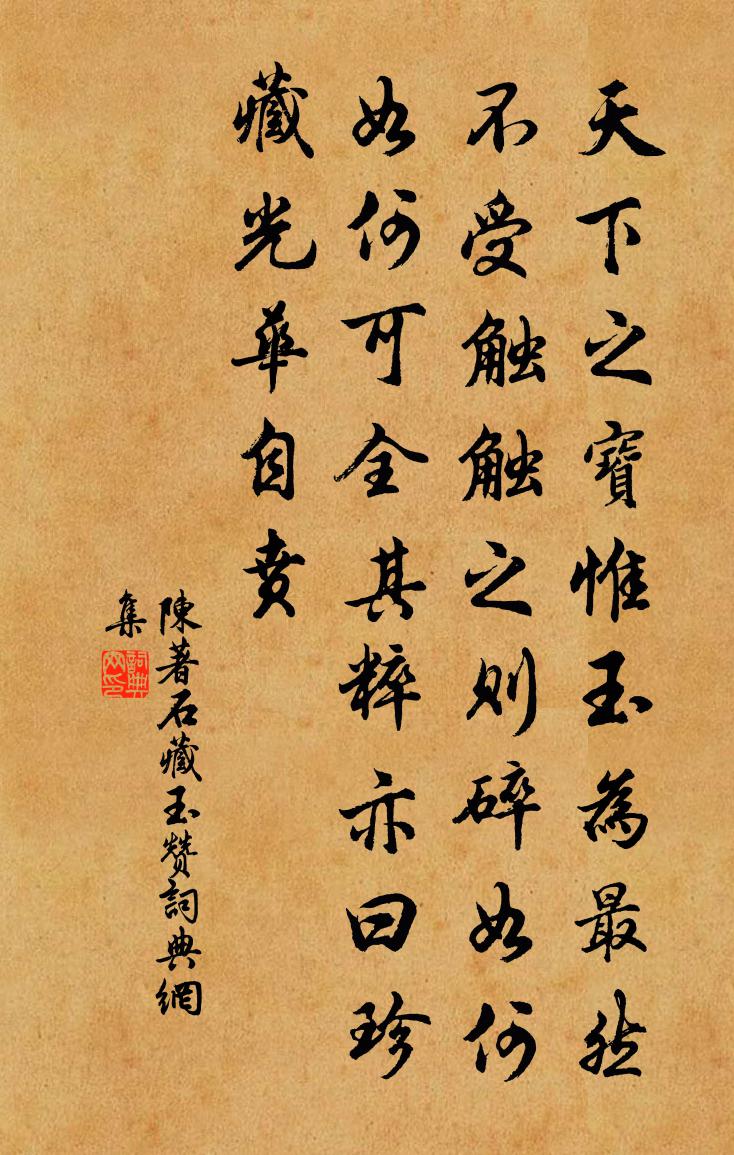 天下之寶惟玉為最然
不受触触之则碎如何
如何可全其粹亦曰珍
藏光華自賁
陳著石藏玉赞詞典網
集
詞典
网印